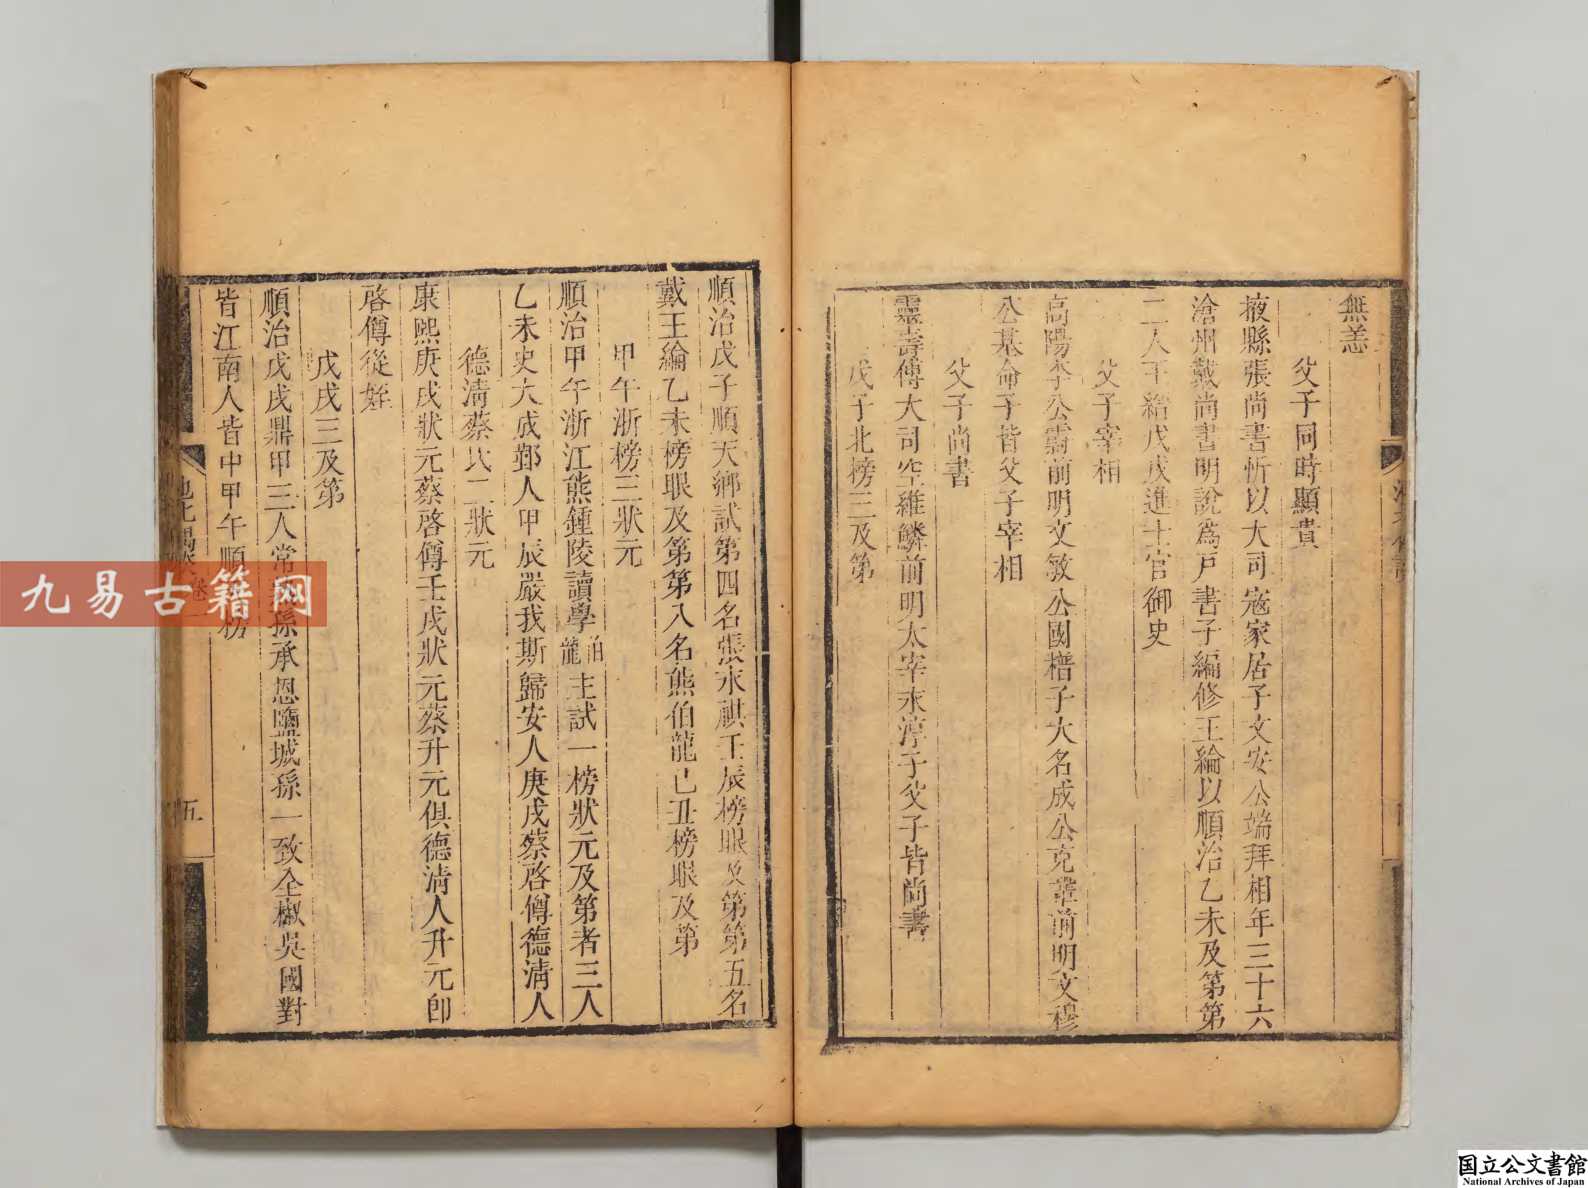 無恙
父子同時顯貴
掖縣張尚書忻以大司寇家居子文安公端拜相年三十六
滄州戴尚書明說爲戶書子編修王綸以順治乙未及第第
二人王給戊戌進士官御史
父子宰相
高陽李公霨前明文敏公國𣚴子大名成公克鞏前明文穆
公基命子皆父子宰相
父子尚書
靈壽傅大司空維鱗前明太宰永淳子父子皆尚書
戊子北榜三及第
順治戊子順天鄉試第四名張永祺壬辰榜眼及第第五名
戴王綸乙未榜眼及第第八名熊伯龍己丑榜眼及第
甲午浙榜三狀元
順治甲午浙江熊鍾陵讀學伯龍主試一榜狀元及第者三人
乙未史大成鄞人甲辰嚴我斯歸安人庚戌蔡啓僔德清人
德清蔡氏二狀元
康熙庚戌狀元蔡啓僔壬戌狀元蔡升元俱德清人升元卽
啓僔從姪
戊戌三及第
順治戊戌鼎甲三人常孫承恩鹽城孫一致全椒吳國對
皆江南人皆中甲午順榜
池北偶卷一
五
九易古籍网
国立公文書館
National Archives of Japan